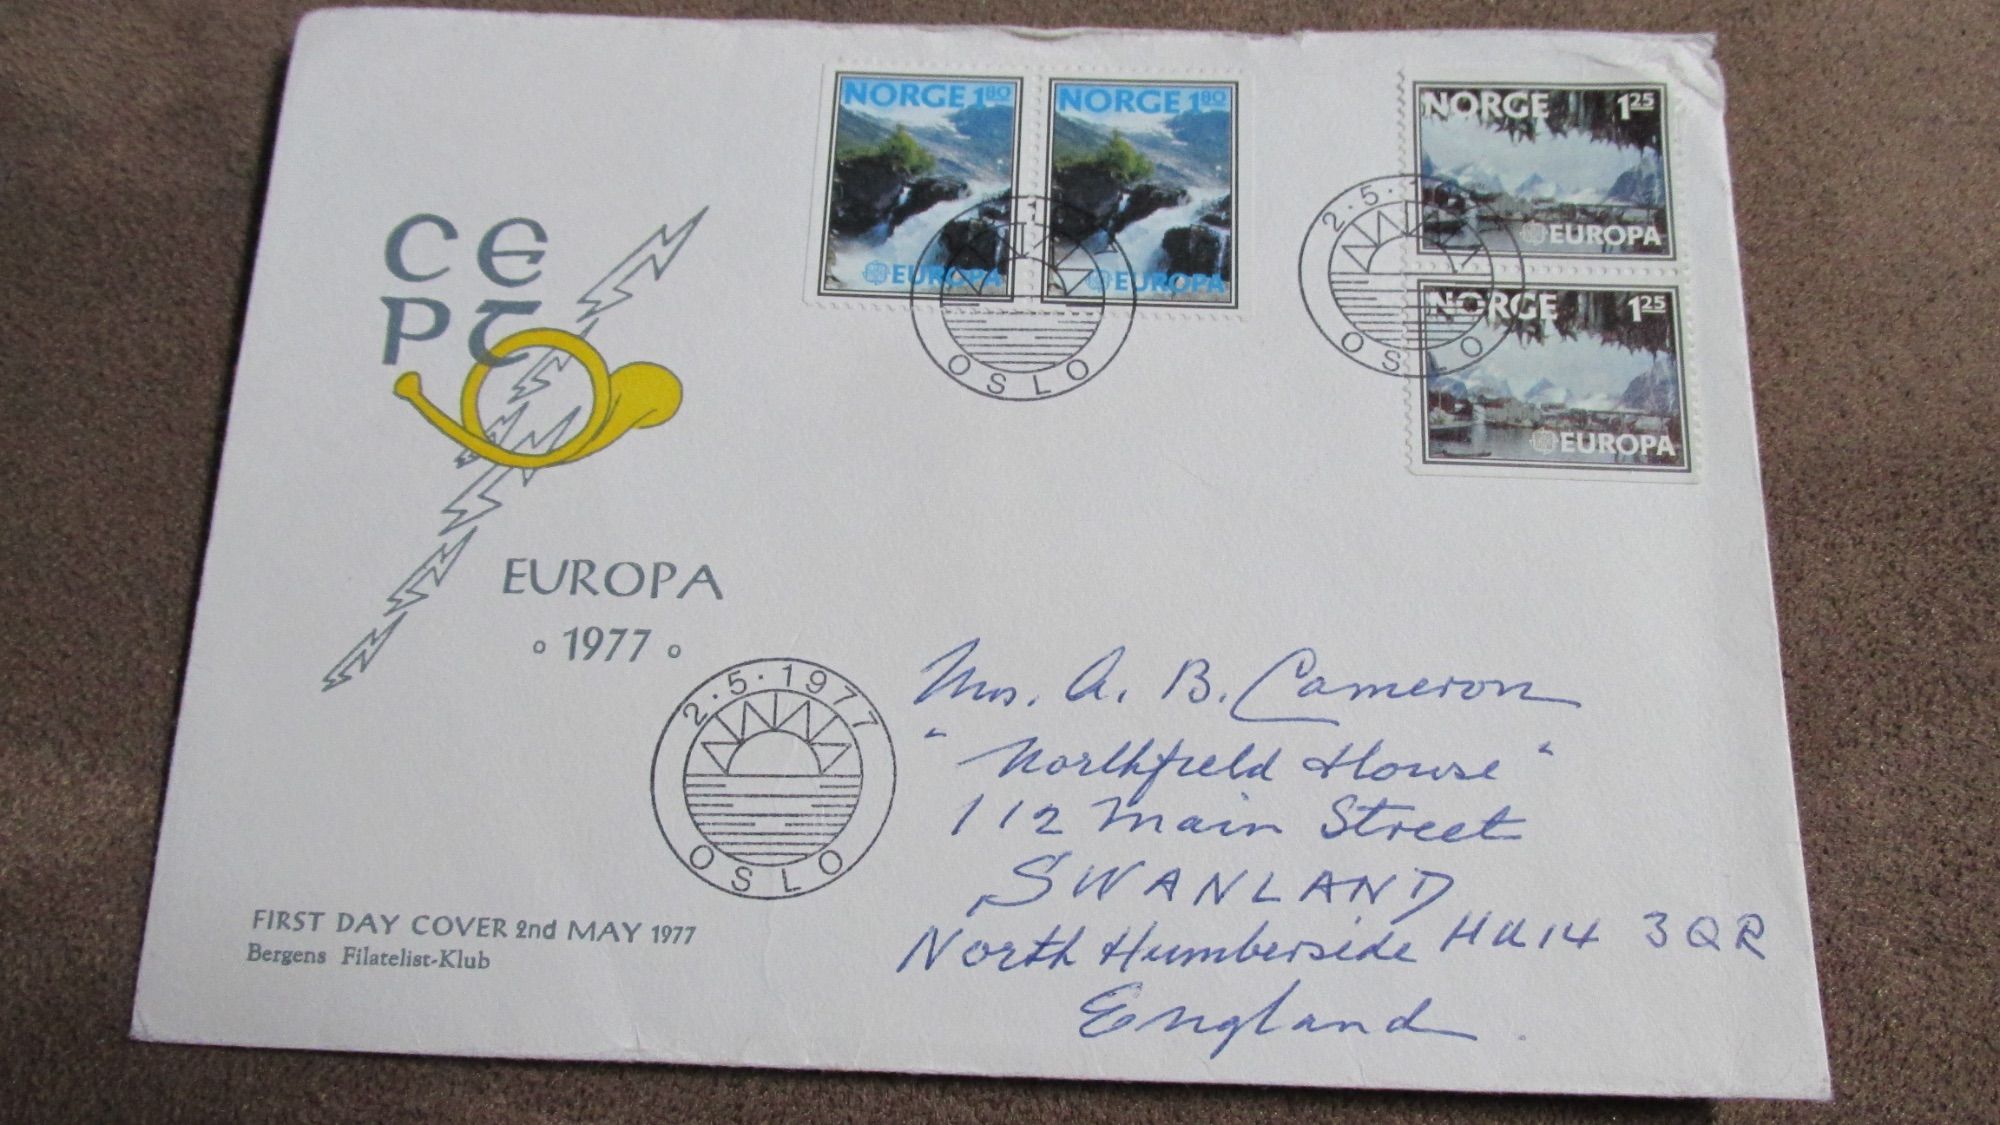 NORGE 1 80
EUROPA
NORGE 1 80
EUROPA
NORGE 1 25
EUROPA
NORGE 1 25
EUROPA
OSLO
2.5.
OSLO
CE
PT
EUROPA
1977
2.5.1977
OSLO
FIRST DAY COVER 2nd MAY 1977
Bergens Filatelist-Klub
Mrs. A. B. Cameron
"Northfield House"
112 Main Street
SWANLAND
North Humberside HU14 3QR
England.